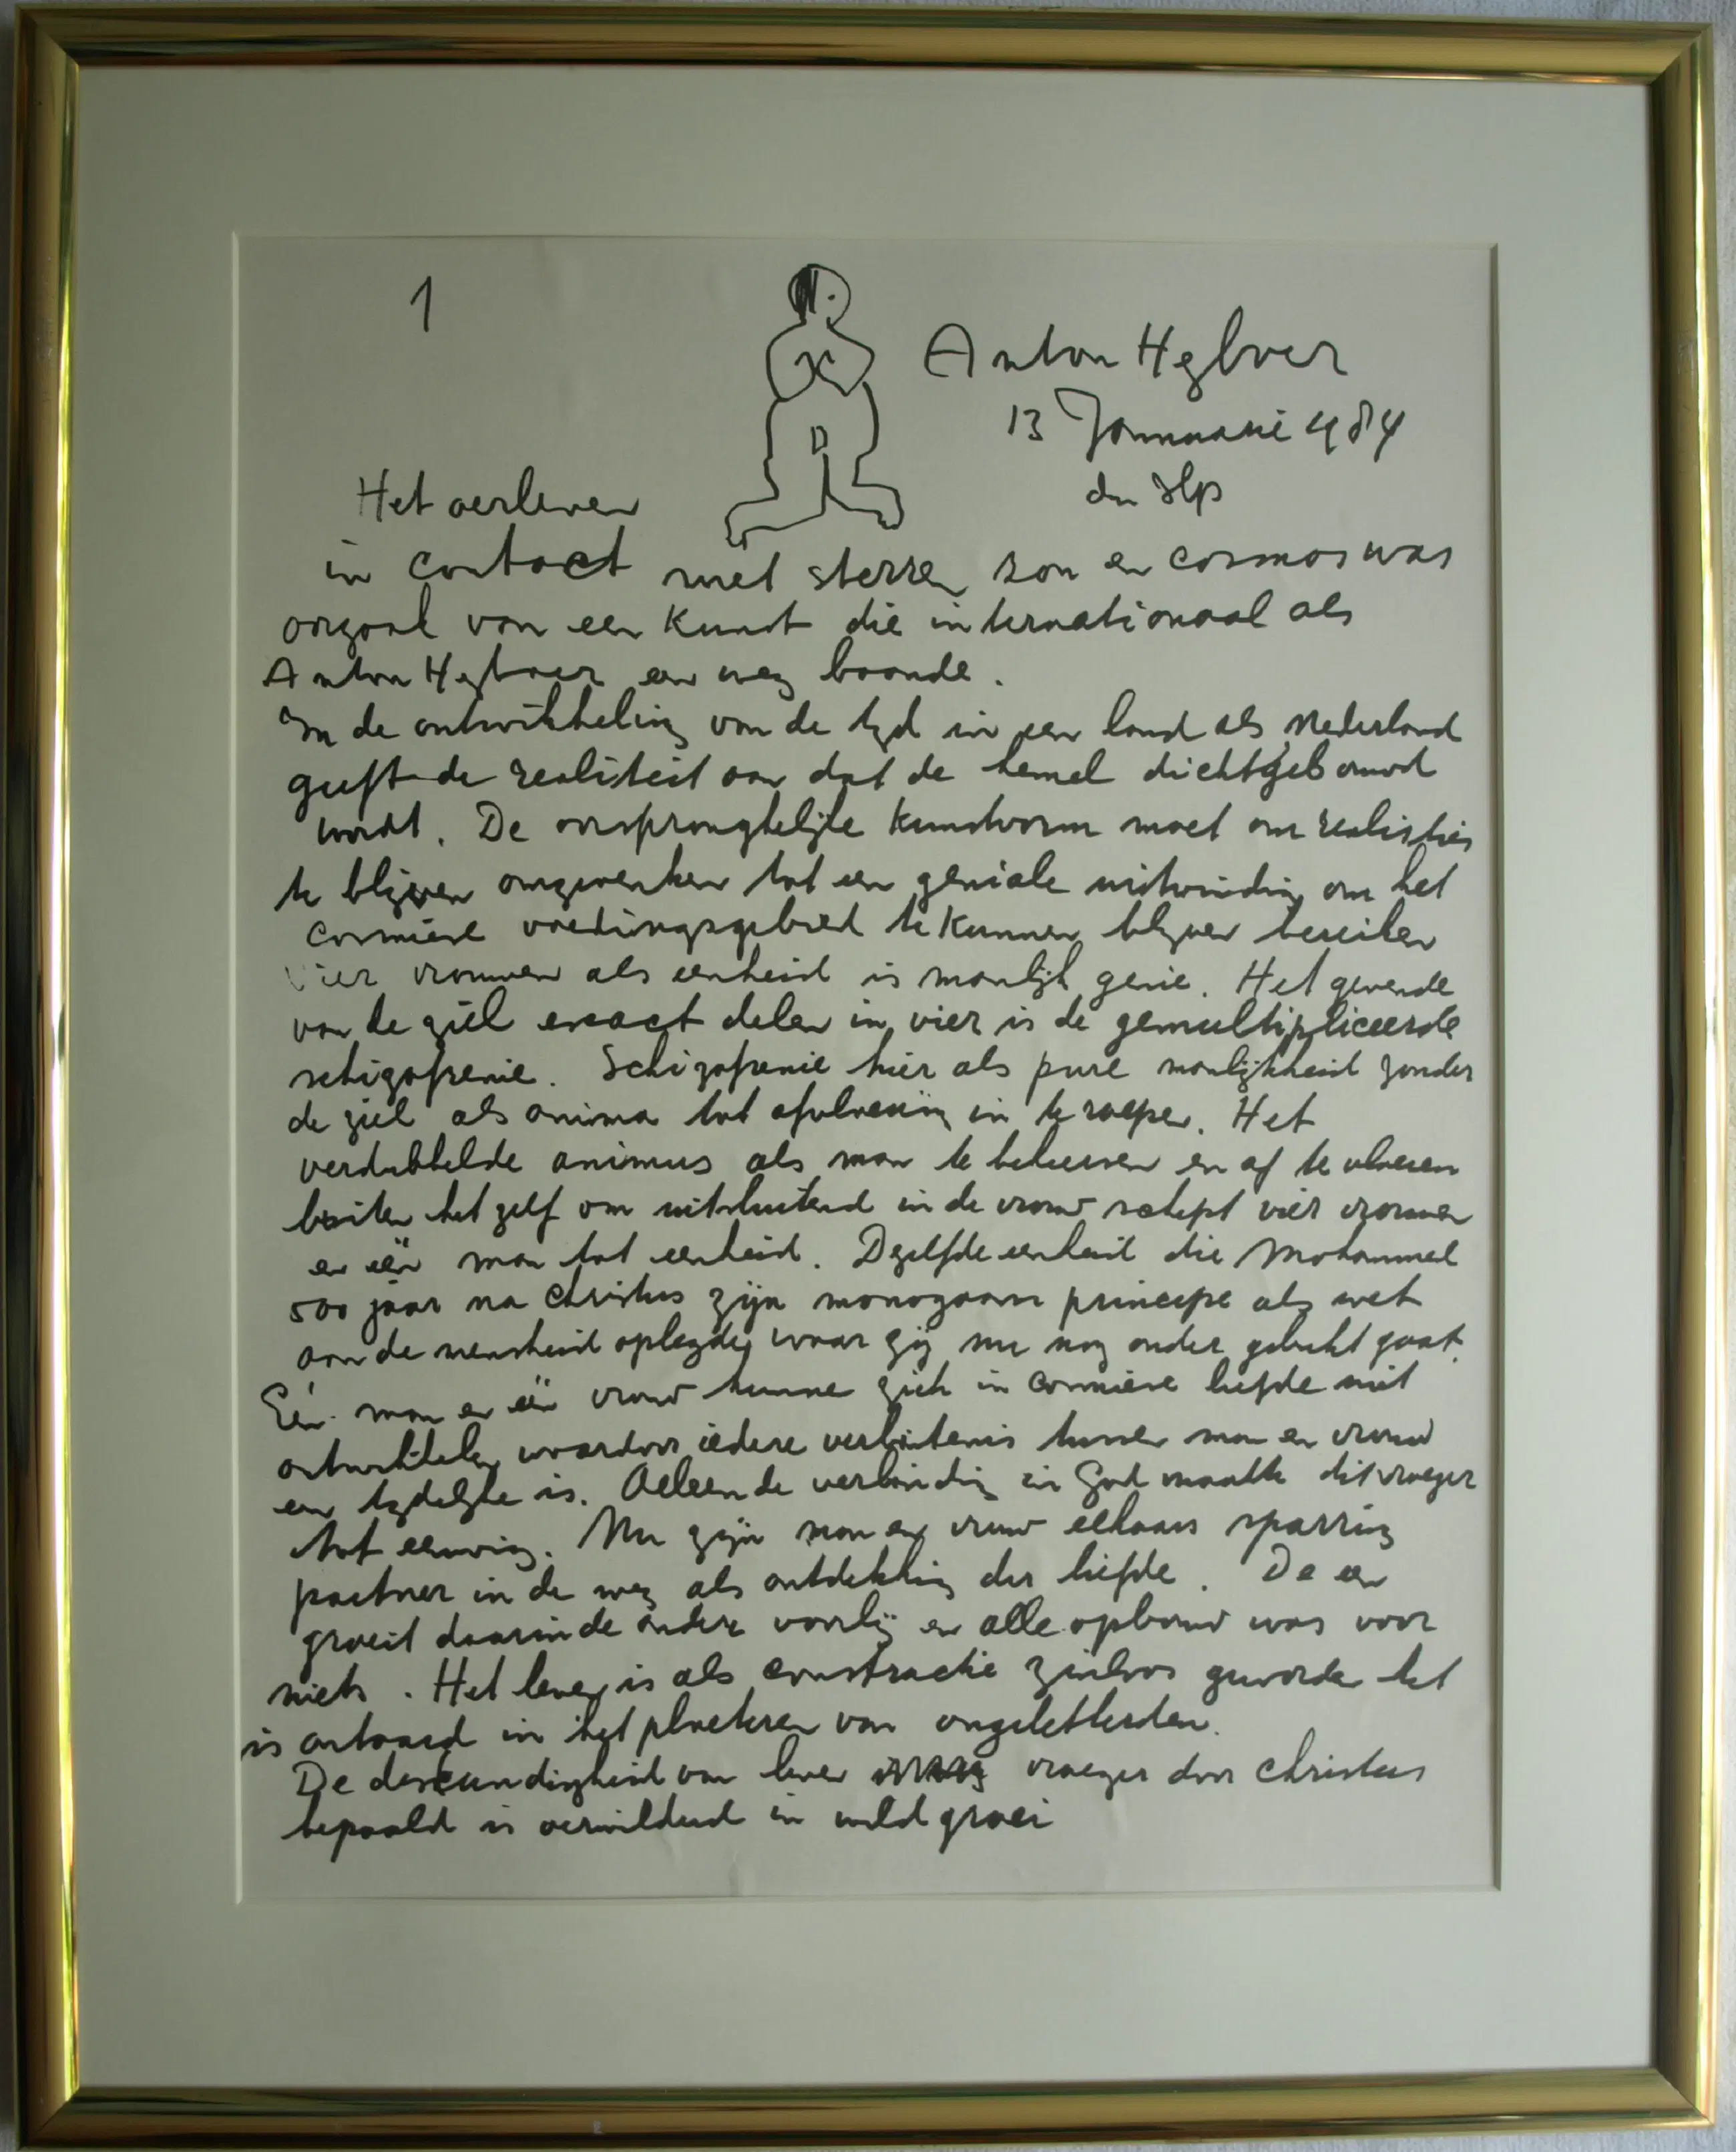 1
Anton Heyboer
13 Januarie 1984
den Ilp
Het oerleven
in contact met sterren zon en cosmos was
oorzaak van een kunst die internationaal als
Anton Heyboer een weg baande.
In de ontwikkeling van de tyd in een land als Nederland
geeft de realiteit aan dat de hemel dichtgebouwd
wordt. De oorspronglelijke kunstvorm moet om realisties
te blijven omgewerken tot een geniale uitvinding om het
cosmiese voedingsgebied te kunnen blijven bereiken
Vier vrouwen als eenheid is manlijk genie. Het gevende
van de ziel exact delen in vier is de gemultipliceerde
schizofrenie. Schizofrenie hier als pure manlijkheid zonder
de ziel als anima tot afvloeiing in te roepen. Het
verdubbelde animus als man te beheersen en af te vloeien
buiten het zelf om uitsluitend in de vrouw schept vier vrouwen
en één man tot eenheid. Dezelfde eenheid die Mohammed
500 jaar na Christus zijn monogaam principe als wet
aan de mensheid oplegde, waar zij nu nog onder gebukt gaat.
Eén man en één vrouw kunne zich in cosmiese liefde niet
ontwikkelen waardoor iedere verbintenis tussen man en vrouw
een tydelijke is. Alleen de verbinding in God maakte dit vroeger
tot eeuwig. Nu zijn man en vrouw elkaars sparring
partner in de weg als ontdekking der liefde. De een
groeit daarin de andere voorbij en alle opbouw was voor
niets. Het leven is als constructie zinloos geworden het
is ontaard in het ploeteren van ongeletterden.
De deskundigheid van leven vroeger door Christus
bepaald is verwilderd in wild groei